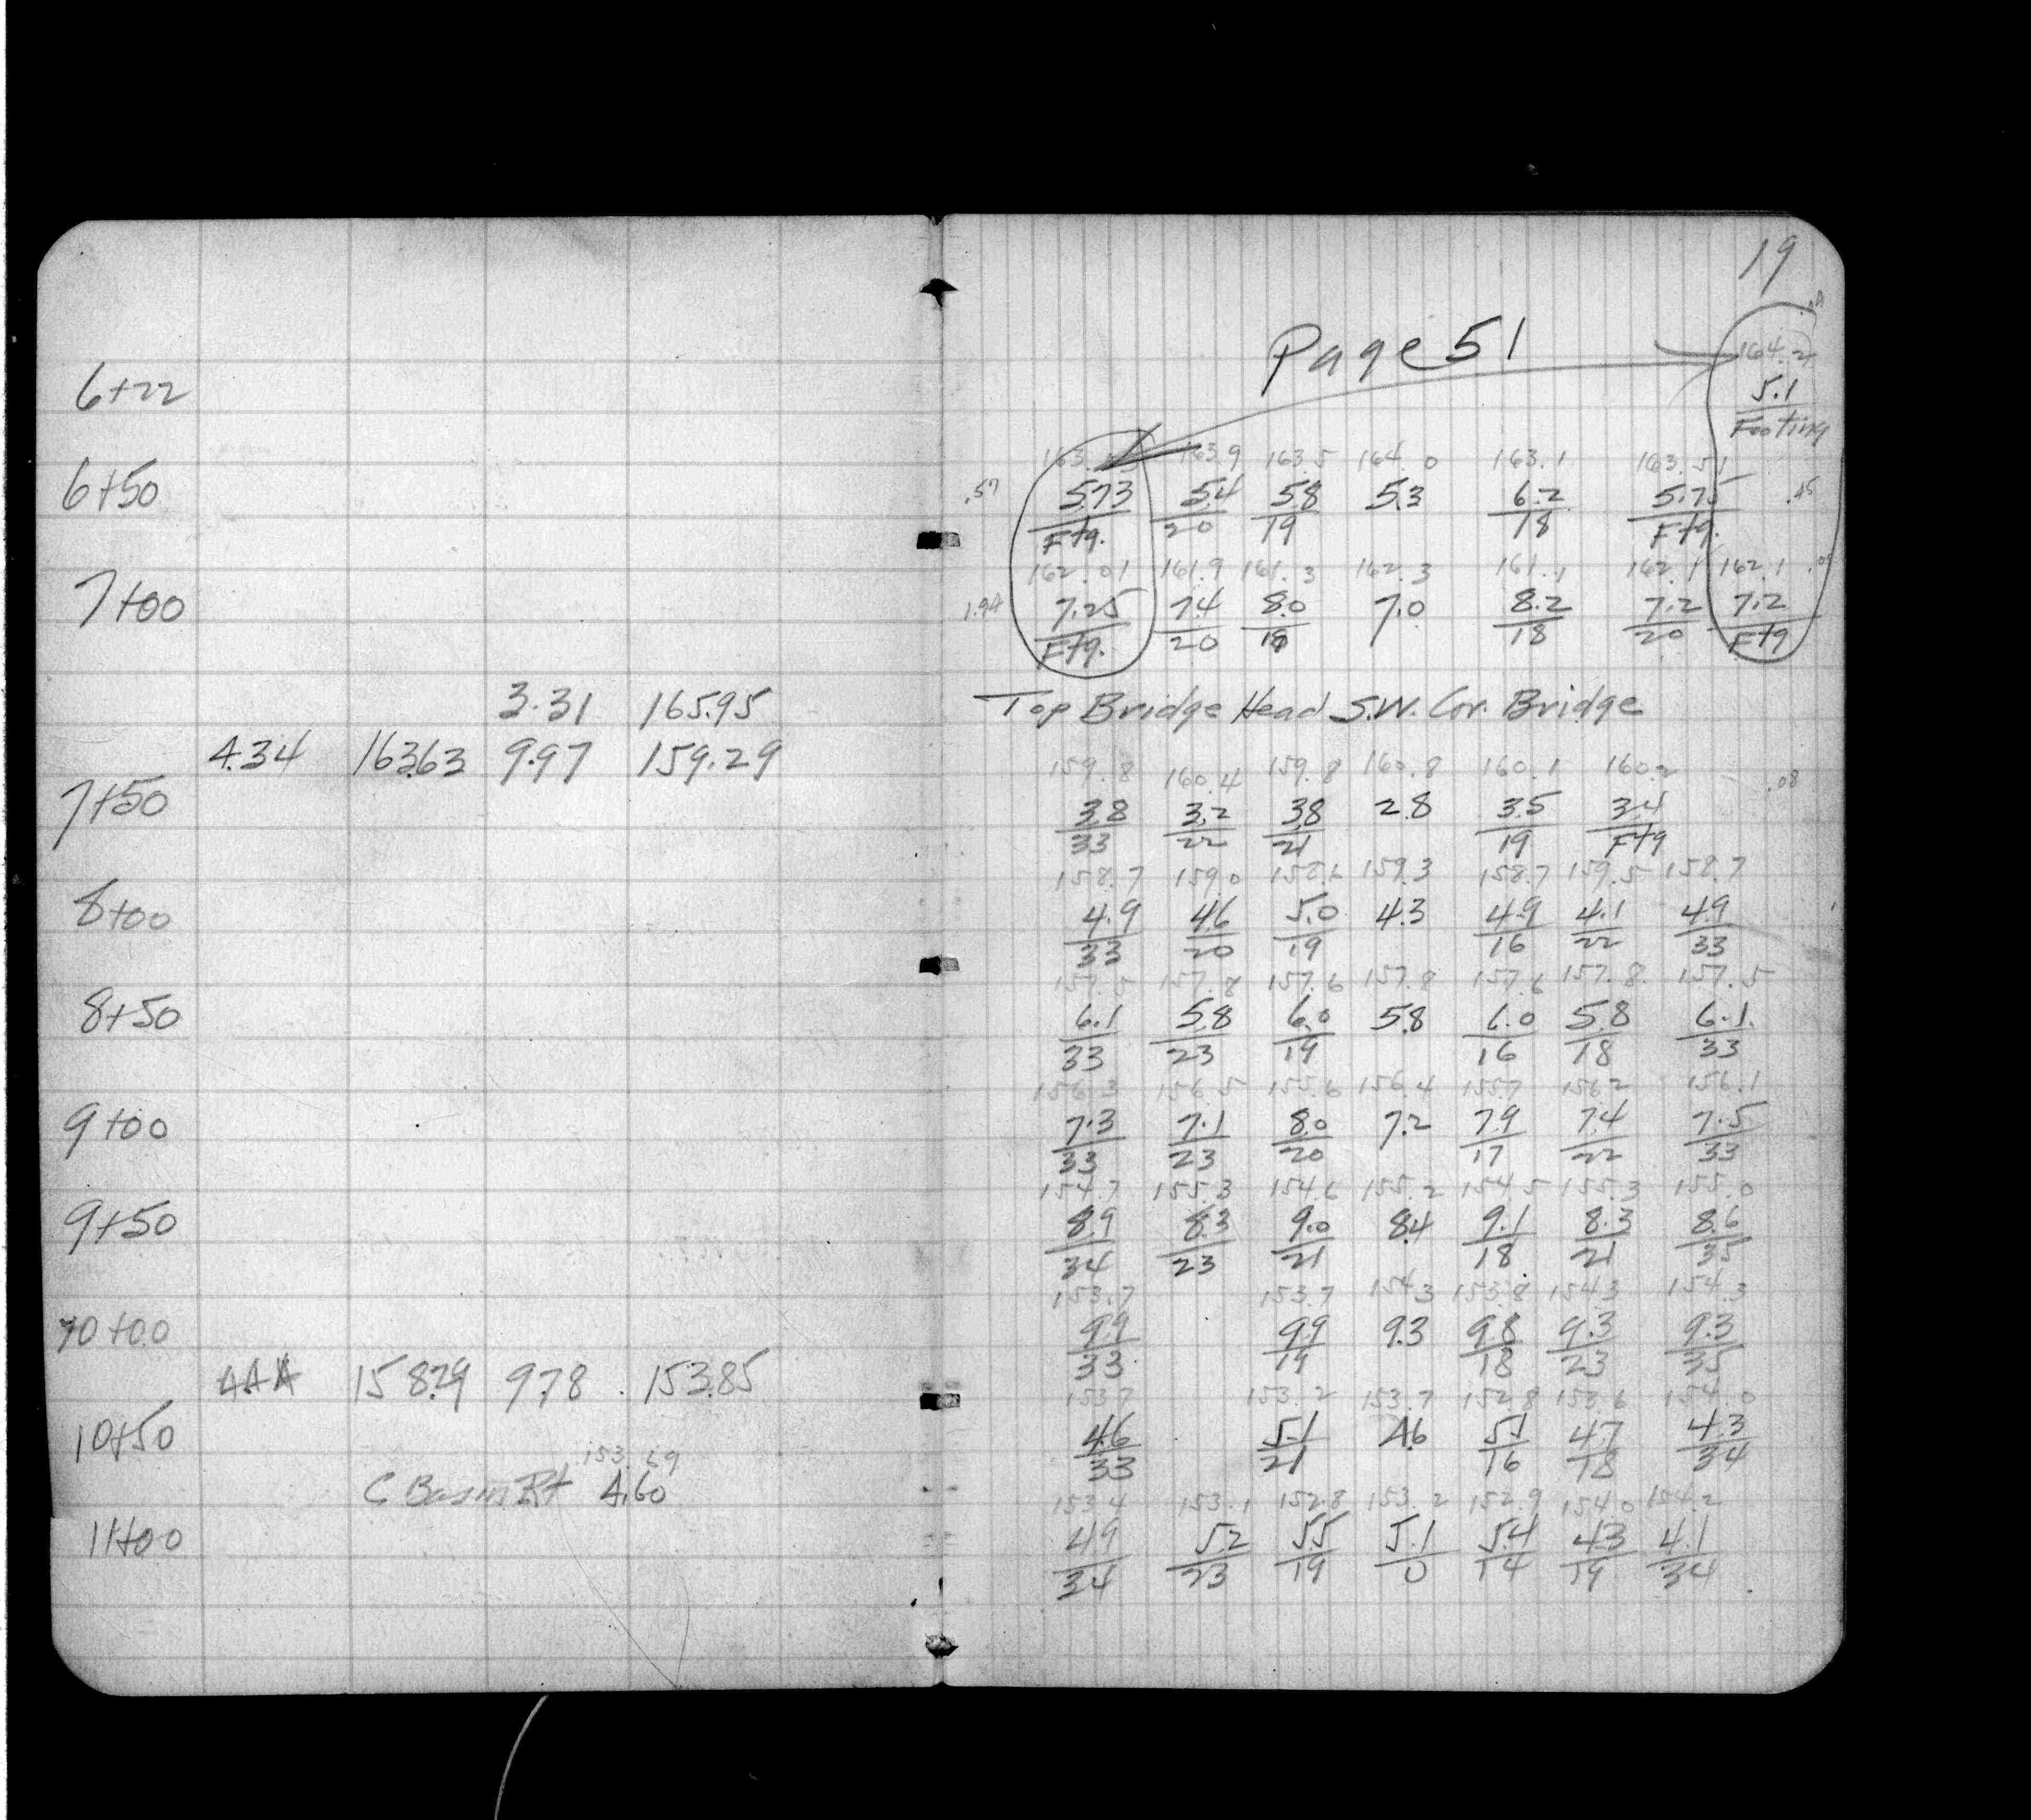 19
Page 51
164.2
6+22 5.1
Footing
163.9 163.5 164.0 163.1 163.51
6+50 .57 5.73 5.4 5.8 5.3 6.2 5.75 .45
Ftg. 20 19 18 Ftg.
162.01 161.9 161.3 162.3 161.1 162.1 162.1
7+00 1.94 7.25 7.4 8.0 7.0 8.2 7.2 7.2
Ftg. 20 18 18 20 Ftg
3.31 165.95 Top Bridge Head S.W. Cor. Bridge
4.34 163.63 9.97 159.29
159.8 160.4 159.8 160.8 160.1 160.2 .08
7+50 3.8 3.2 3.8 2.8 3.5 3.4
33 22 21 19 Ftg
158.7 159.0 158.6 159.3 158.7 159.5 158.7
8+00 4.9 4.6 5.0 4.3 4.9 4.1 4.9
33 20 19 16 22 33
157.5 157.8 157.6 157.8 157.6 157.8 157.5
8+50 6.1 5.8 6.0 5.8 6.0 5.8 6.1
33 23 19 16 18 33
156.3 156.5 155.6 156.4 155.7 156.2 156.1
9+00 7.3 7.1 8.0 7.2 7.9 7.4 7.5
33 23 20 17 22 33
154.7 155.3 154.6 155.2 154.5 155.3 155.0
9+50 8.9 8.3 9.0 8.4 9.1 8.3 8.6
34 23 21 18 21 35
153.7 153.7 154.3 153.8 154.3 154.3
10+00 9.9 9.9 9.3 9.8 9.3 9.3
33 19 18 23 35
4.44 158.29 9.78 153.85
153.7 153.2 153.7 152.8 153.6 154.0
10+50 4.6 5.1 4.6 5.5 4.7 4.3
33 21 16 18 34
153.69
C Basin Rt 4.60
153.4 153.1 152.8 153.2 152.9 154.0 154.2
11+00 4.9 5.2 5.5 5.1 5.4 4.3 4.1
34 23 19 0 14 19 34